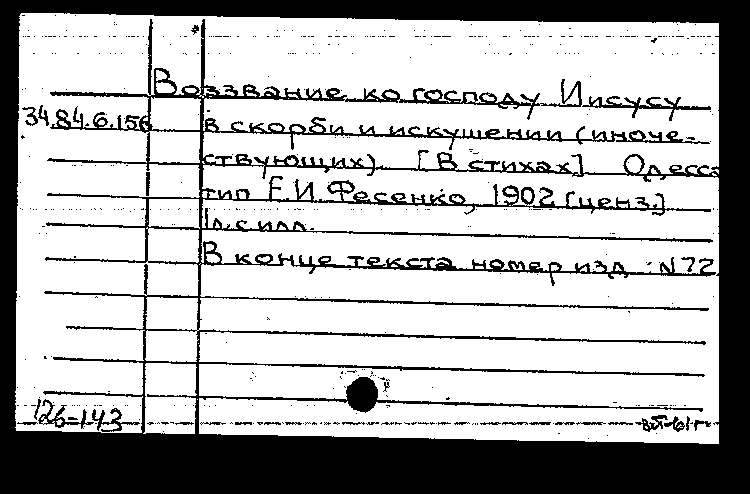 Воззвание ко господу Иисусу
34.84.6.156 в скорби и искушении (иноче-
ствующих). [В стихах] Одесса
тип Е.И. Фесенко, 1902 [ценз.]
1л. с илл.
В конце текста номер изд : N 72
126-143